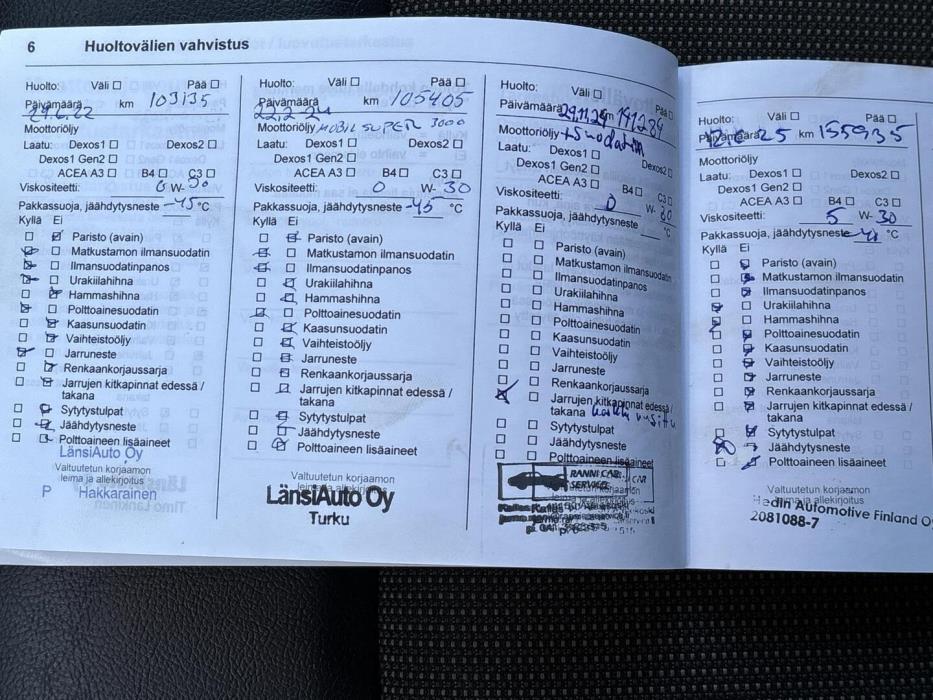 6 Huoltovälien vahvistus
Huolto: Väli Pää
Päivämäärä 29.6.22 km 103135
Moottoriöljy
Laatu: Dexos1 Dexos2
Dexos1 Gen2
ACEA A3 B4 C3
Viskositeetti: 0 W- 30
Pakkassuoja, jäähdytysneste -45 °C
Kyllä Ei
Paristo (avain)
Matkustamon ilmansuodatin
Ilmansuodatinpanos
Urakiilahihna
Hammashihna
Polttoainesuodatin
Kaasunsuodatin
Vaihteistoöljy
Jarruneste
Renkaankorjaussarja
Jarrujen kitkapinnat edessä /
takana
Sytytystulpat
Jäähdytysneste
Polttoaineen lisäaineet
LänsiAuto Oy
Valtuutetun korjaamon
leima ja allekirjoitus
P Hakkarainen
Huolto: Väli Pää
Päivämäärä km 105405
Moottoriöljy MOBIL SUPER 3000
Laatu: Dexos1 Dexos2
Dexos1 Gen2
ACEA A3 B4 C3
Viskositeetti: 0 W- 30
Pakkassuoja, jäähdytysneste -45 °C
Kyllä Ei
Paristo (avain)
Matkustamon ilmansuodatin
Ilmansuodatinpanos
Urakiilahihna
Hammashihna
Polttoainesuodatin
Kaasunsuodatin
Vaihteistoöljy
Jarruneste
Renkaankorjaussarja
Jarrujen kitkapinnat edessä /
takana
Sytytystulpat
Jäähdytysneste
Polttoaineen lisäaineet
Valtuutetun korjaamon
leima ja allekirjoitus
LänsiAuto Oy
Turku
Huolto: Väli Pää
Päivämäärä 29.11.24 km 141284
Moottoriöljy +Suodatin
Laatu: Dexos1 Dexos2
Dexos1 Gen2
ACEA A3 B4 C3
Viskositeetti: 0 W- 30
Pakkassuoja, jäähdytysneste °C
Kyllä Ei
Paristo (avain)
Matkustamon ilmansuodatin
Ilmansuodatinpanos
Urakiilahihna
Hammashihna
Polttoainesuodatin
Kaasunsuodatin
Vaihteistoöljy
Jarruneste
Renkaankorjaussarja
Jarrujen kitkapinnat edessä /
takana
Sytytystulpat
Jäähdytysneste
Polttoaineen lisäaineet
RANNI CAR
SERVICE
Huolto: Väli Pää
Päivämäärä 12.6.25 km 155935
Moottoriöljy
Laatu: Dexos1 Dexos2
Dexos1 Gen2
ACEA A3 B4 C3
Viskositeetti: 5 W- 30
Pakkassuoja, jäähdytysneste °C
Kyllä Ei
Paristo (avain)
Matkustamon ilmansuodatin
Ilmansuodatinpanos
Urakiilahihna
Hammashihna
Polttoainesuodatin
Kaasunsuodatin
Vaihteistoöljy
Jarruneste
Renkaankorjaussarja
Jarrujen kitkapinnat edessä /
takana
Sytytystulpat
Jäähdytysneste
Polttoaineen lisäaineet
Valtuutetun korjaamon
leima ja allekirjoitus
Hedin Automotive Finland O
2081088-7